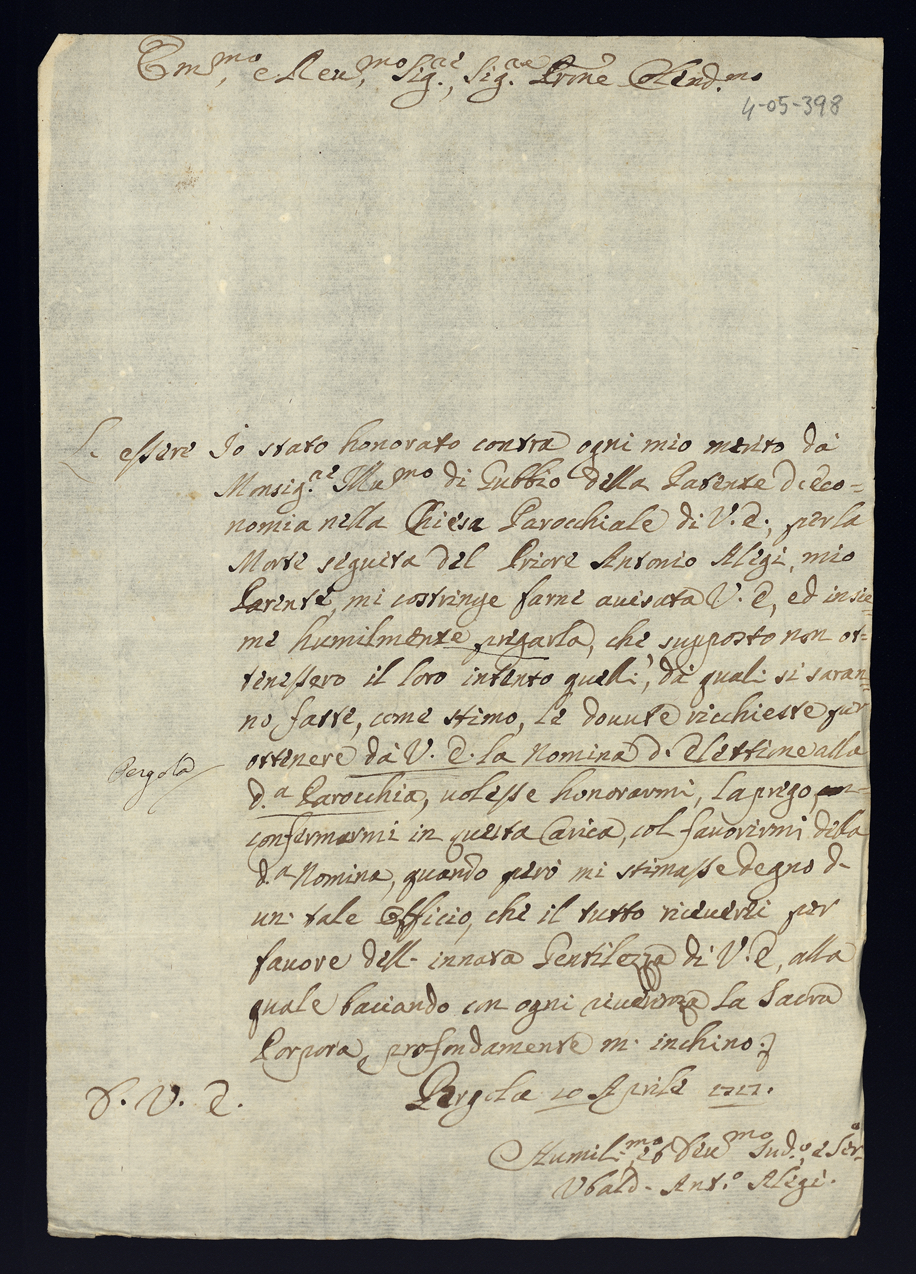 Em.mo, e Reu.mo Sig.re, Sig.re Prone Colend.mo
4-05-398
L' essere Io stato honorato contra ogni mio merito da
Monsig.re Illu.mo di Gubbio della Patente d'Eco-
nomia nella Chiesa Parocchiale di V. E., per la
Morte seguita del Priore Antonio Alegi, mio
Parente, mi costringe farne auisata V. E, ed insie
me humilmente pregarla, che, supposto non ot-
tenessero il loro intento quelli, da quali si saran-
no fatte, come stimo, le douute ricchieste per
ottenere da V. E. la Nomina d'Elettione alla
d.a Parocchia, uolesse honorarmi, la prego,
confermarmi in questa Carica, col fauorirmi della
d.a Nomina, quando però mi stimasse degno d'
un' tale Officio, che il tutto riceuerei per
fauore dell' innata Gentilezza di V. E, alla
quale baciando con ogni riuerenza la Sacra
Porpora, profondamente m' inchino.
Pergola
D. V. E.
Pergola 10 Aprile 1717.
Humil.mo, Deu.mo Sud.o, e Ser.
Ubald. Ant.o Alegi.